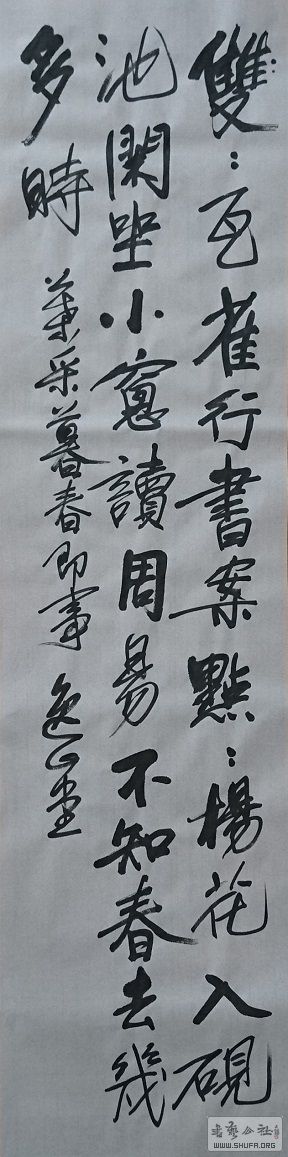 雙：瓦雀行書案點：楊花入硯
池閑坐小窻讀周易不知春去幾
多時
葉采暮春即事
書藝公社
WWW.SHUFA.ORG